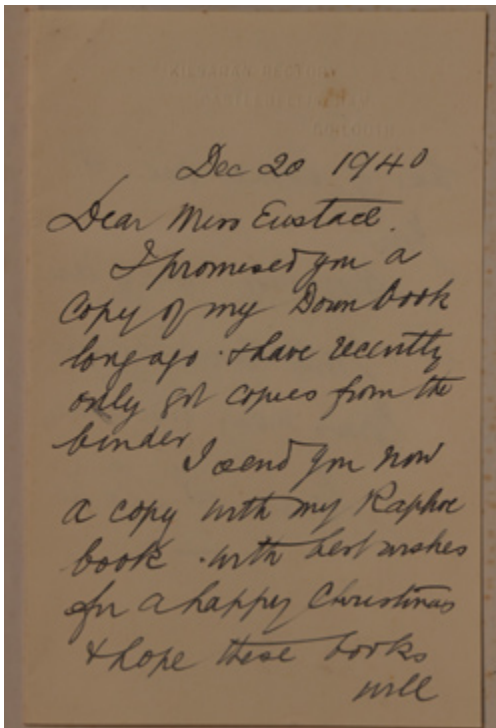 KILSARAN RECTORY
CASTLEBELLINGHAM
CO. LOUTH
Dec 20 1940
Dear Miss Eustace.
I promised you a
copy of my Down book
long ago . & have recently
only got copies from the
binder
I send you now
a copy with my Raphoe
book . with best wishes
for a happy Christmas
& hope these books
will